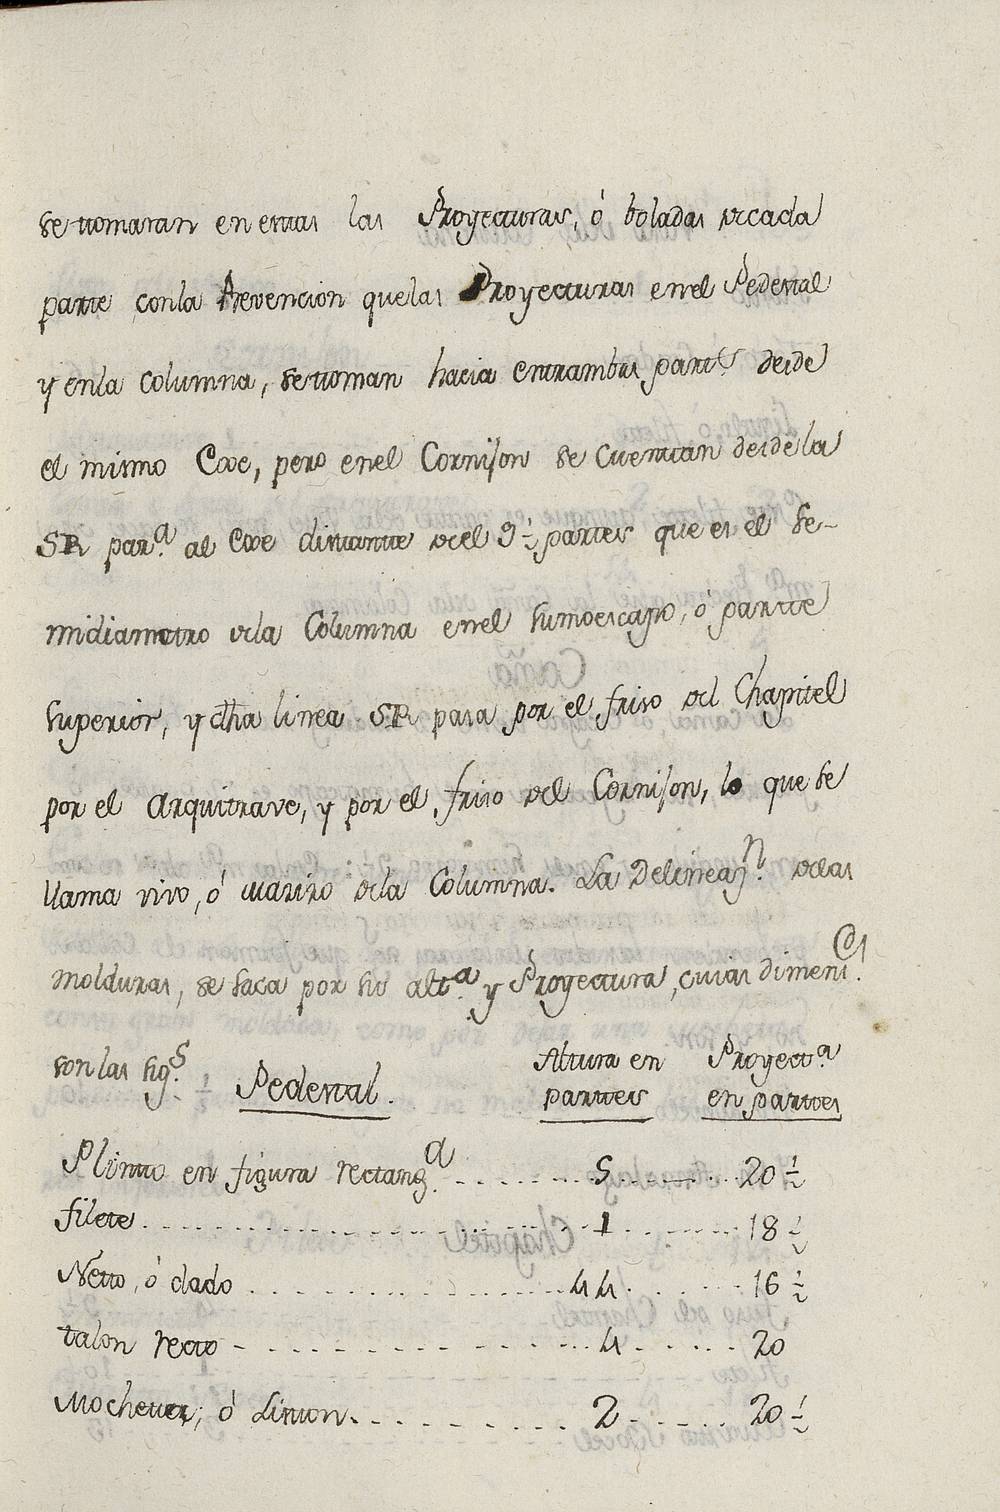 se tomaran en estas las Proyecturas, ó boladas de cada
parte, con la Prevencion que las Proyecturas en el Pedestal
y en la columna, se toman hacia entrambas partˢ desde
el mismo Exe, pero en el Cornison se cuentan desde la
SR par.ª al Exe distante del 9 ½ partes que es el Se-
midiametro de la Columna en el sumoescapo, ó parte
superior, y dha linea SR pasa por el friso del Chapitel
por el Arquitrave, y por el friso del Cornison, lo que se
llama vivo, ó macizo de la Columna. La Delineaz.ⁿ de las
molduras, se saca por su alt.ª y Proyectura, cuias dimens.ᵉˢ
son las sig.ˢ Pedestal. Altura en partes Proyect.ª en partes
Plinto en figura rectang.ª 5 20 ½
filete 1 18 ½
Netto, ó dado 44 16 ½
talon recto 4 20
Mocheta, ó Liston 2 20 ½